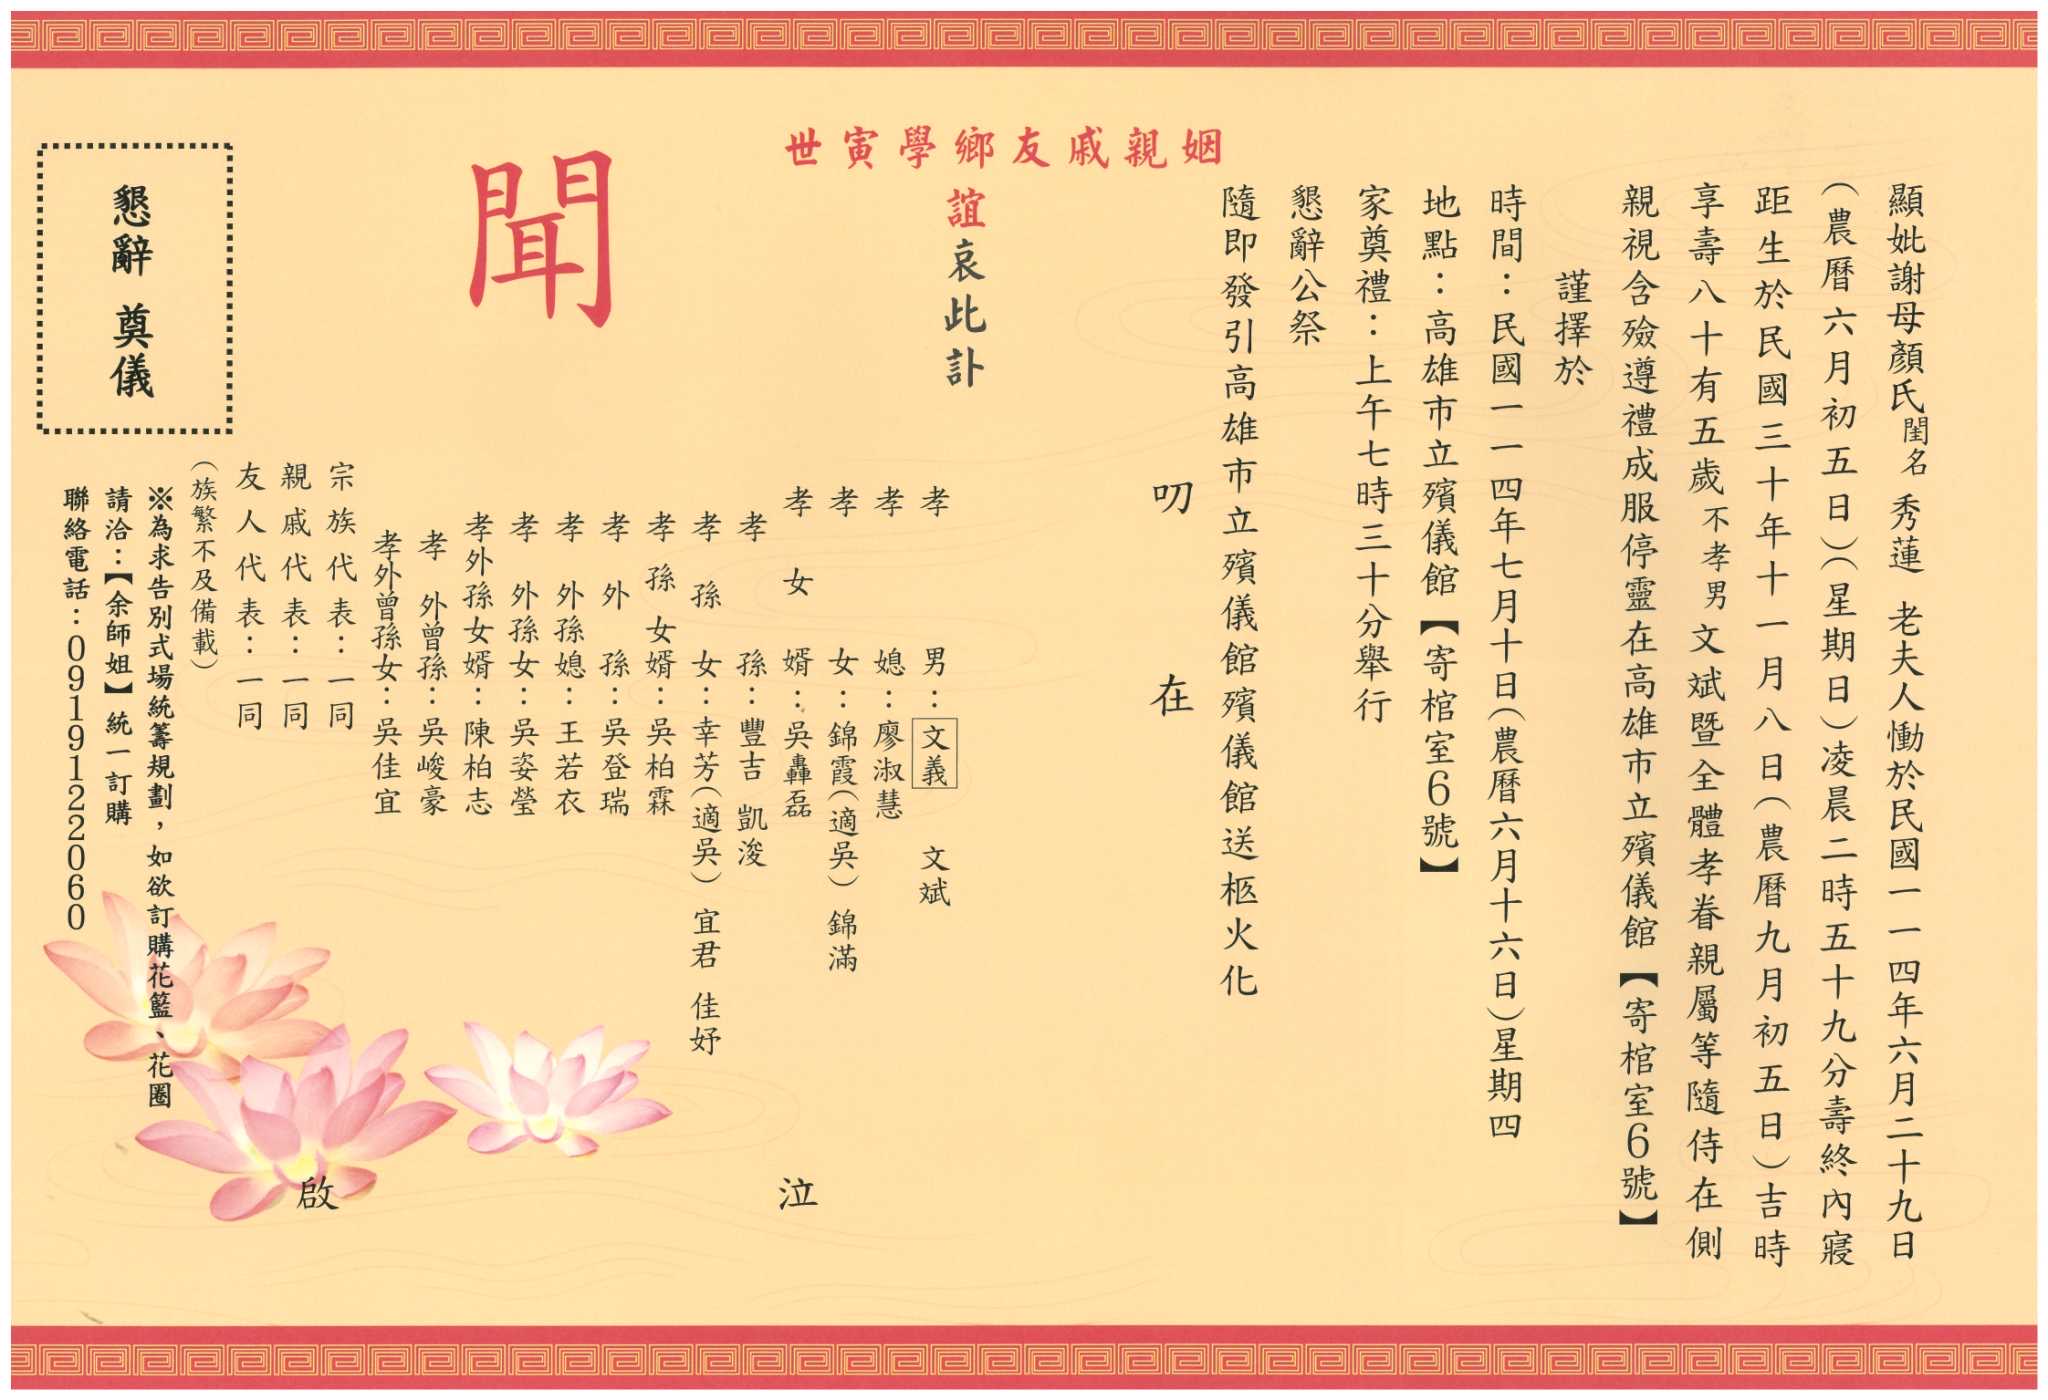 顯妣謝母顏氏閨名 秀蓮 老夫人慟於民國一一四年六月二十九日
（農曆六月初五日）（星期日）凌晨二時五十九分壽終內寢
距生於民國三十年十一月八日（農曆九月初五日）吉時
享壽八十有五歲不孝男文斌暨全體孝眷親屬等隨侍在側
親視含殮遵禮成服停靈在高雄市立殯儀館【寄棺室6號】
謹擇於
時間：民國一一四年七月十日（農曆六月十六日）星期四
地點：高雄市立殯儀館【寄棺室6號】
家奠禮：上午七時三十分舉行
懇辭公祭
隨即發引高雄市立殯儀館殯儀館送柩火化
叨在
姻親戚友鄉學寅世
誼哀此訃
聞
孝男：文義 文斌
孝媳：廖淑慧
孝女：錦霞（適吳） 錦滿
孝女婿：吳轟磊
孝孫：豐吉 凱浚
孝孫女：幸芳（適吳） 宜君 佳妤
孝孫女婿：吳柏霖
孝外孫：吳登瑞
孝外孫媳：王若衣
孝外孫女：吳姿瑩
孝外孫女婿：陳柏志
孝外曾孫：吳峻豪
孝外曾孫女：吳佳宜
泣
宗族代表：一同
親戚代表：一同
友人代表：一同
（族繁不及備載）
啟
※為求告別式場統籌規劃，如欲訂購花籃、花圈
請洽：【余師姐】統一訂購
聯絡電話：0919122060
懇辭 奠儀